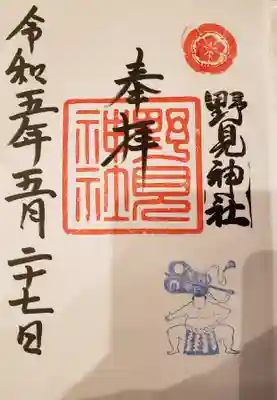 野見神社
奉拝
野見神社
令和五年五月二十七日